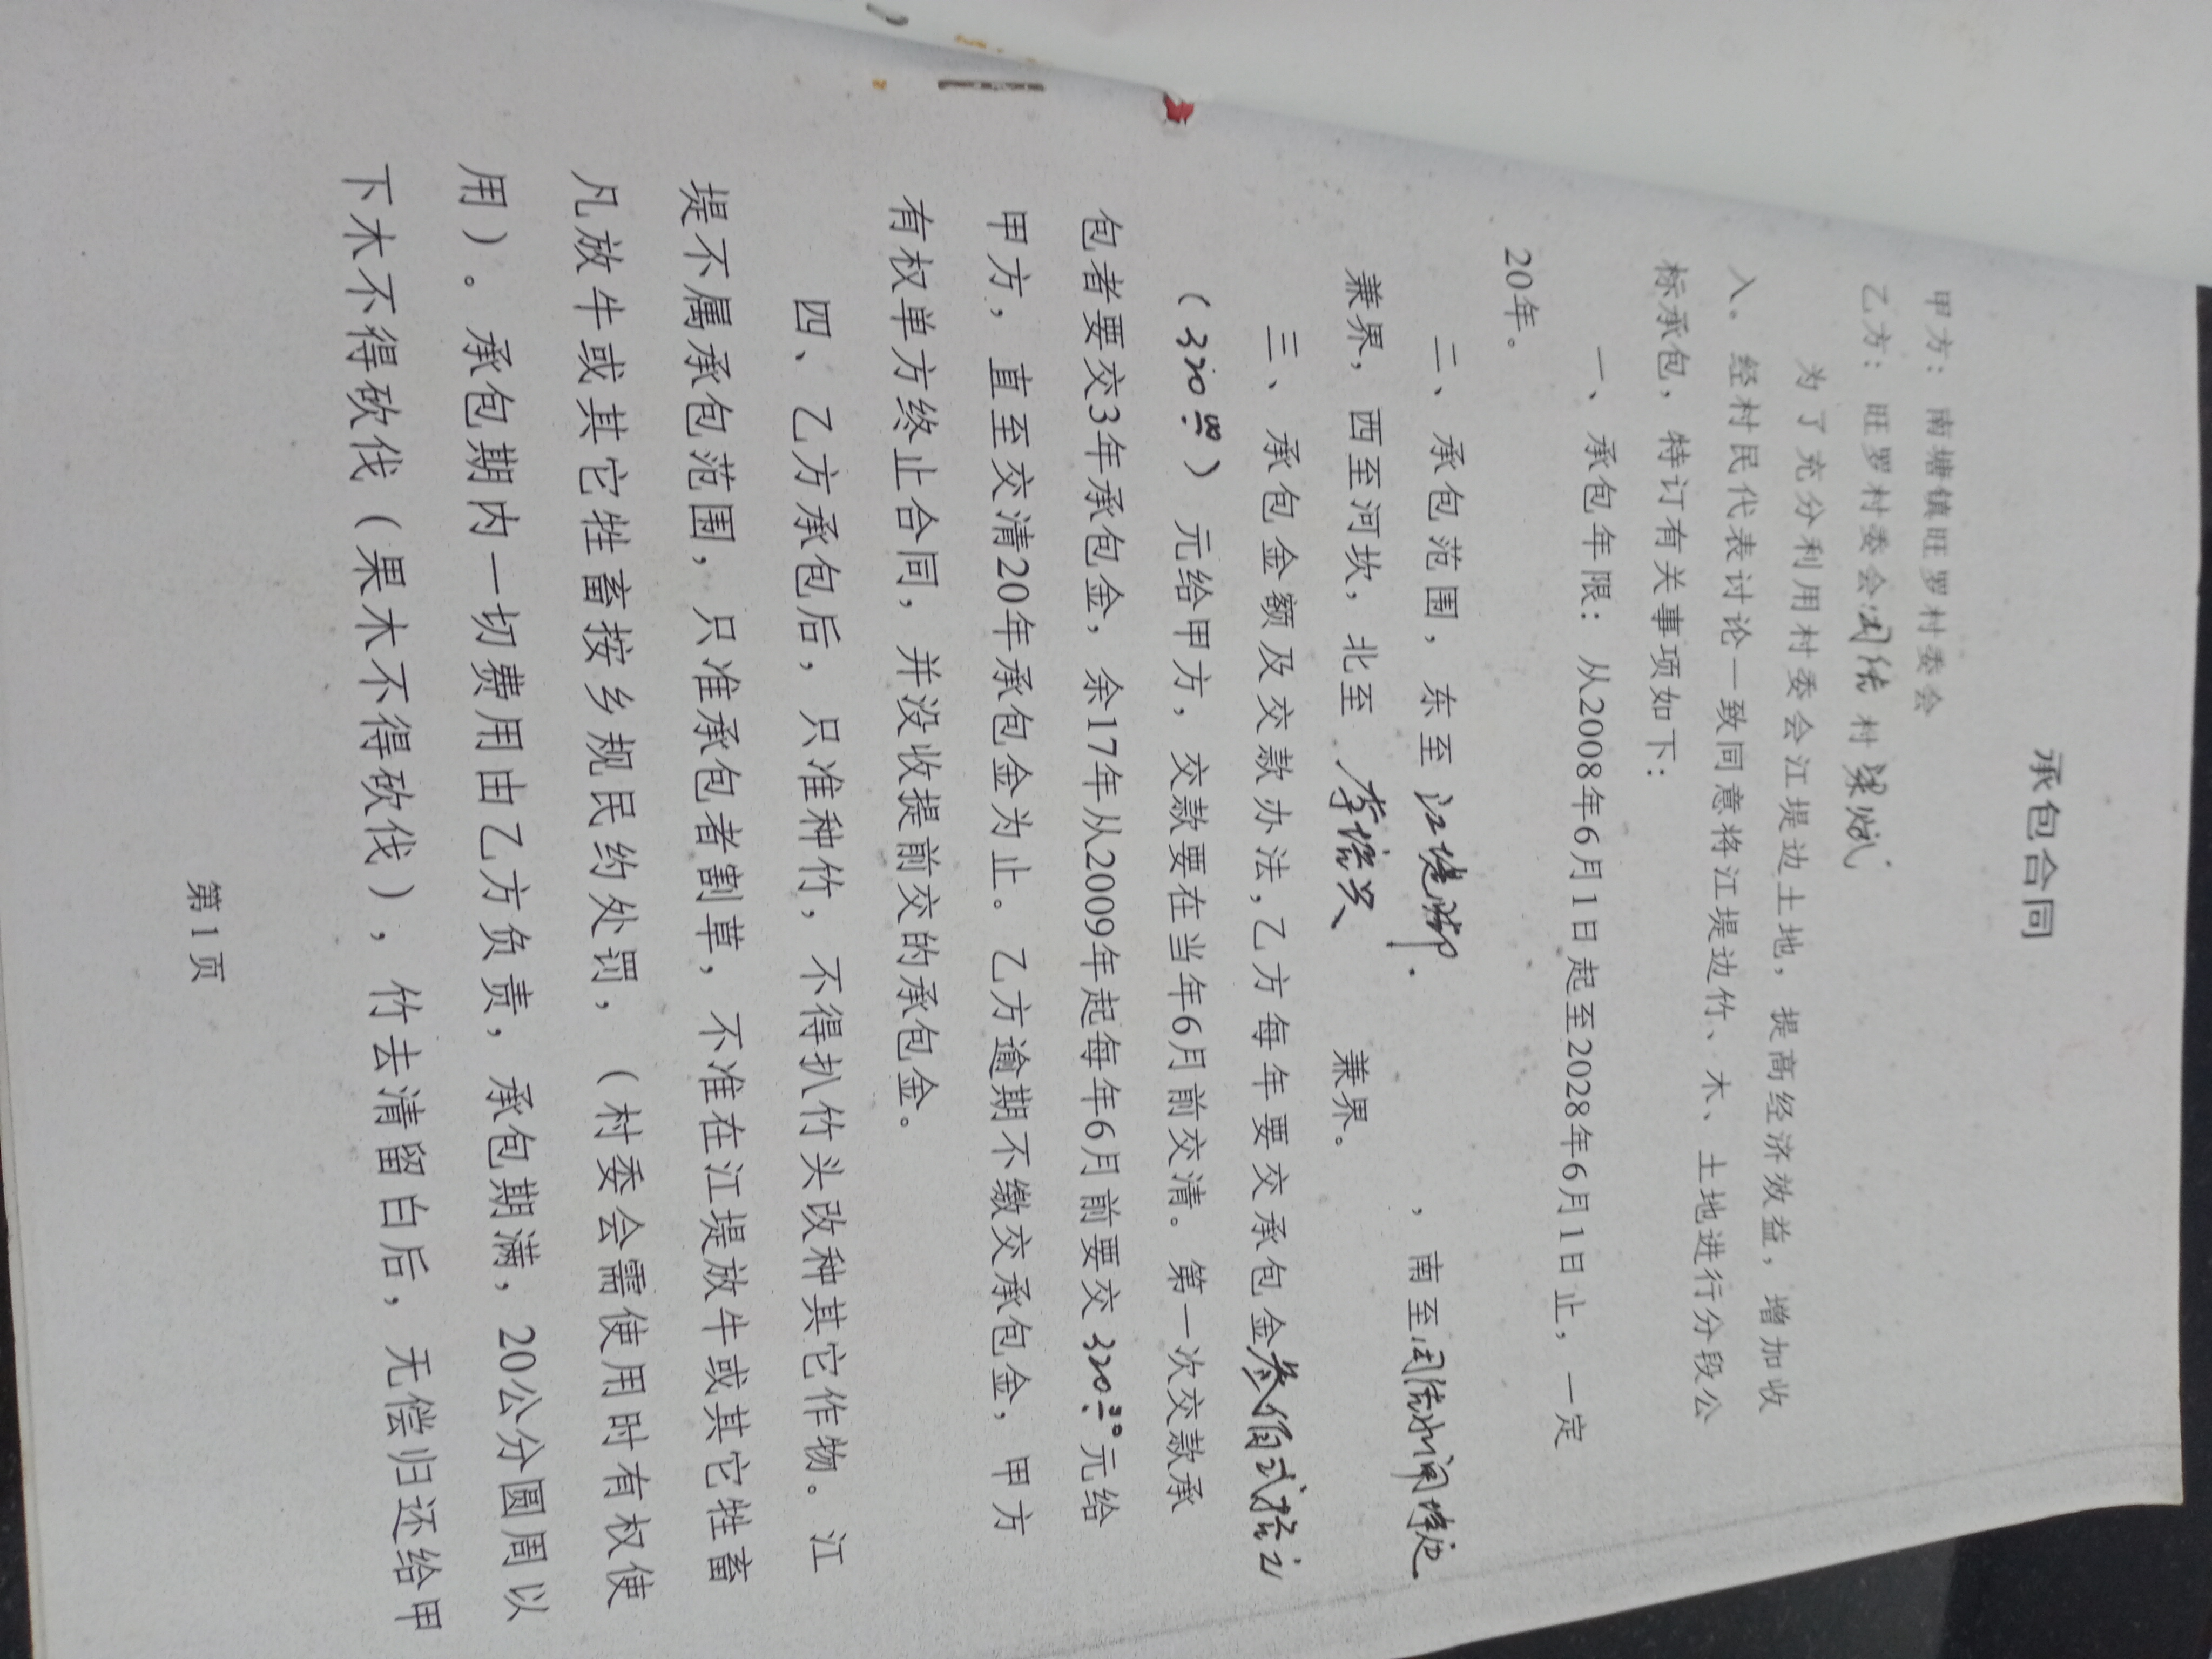 承包合同
甲方：南塘镇旺罗村委会
乙方：旺罗村委会 村梁
为了充分利用村委会江堤边土地，提高经济效益，增加收
入。经村民代表讨论一致同意将江堤边竹、木、土地进行分段公
标承包，特订有关事项如下：
一、承包年限：从2008年6月1日起至2028年6月1日止，一定
20年。
二、承包范围，东至江堤脚．，南至
兼界，西至河坎，北至李 兴兼界。
三、承包金额及交款办法，乙方每年要交承包金叁佰弍拾
（320 ）元给甲方，交款要在当年6月前交清。第一次交款承
包者要交3年承包金，余17年从2009年起每年6月前要交320元给
甲方，直至交清20年承包金为止。乙方逾期不缴交承包金，甲方
有权单方终止合同，并没收提前交的承包金。
四、乙方承包后，只准种竹，不得扒竹头改种其它作物。江
堤不属承包范围，只准承包者割草，不准在江堤放牛或其它牲畜
凡放牛或其它牲畜按乡规民约处罚，（村委会需使用时有权使
用）。承包期内一切费用由乙方负责，承包期满，20公分圆周以
下木不得砍伐（果木不得砍伐），竹去清留白后，无偿归还给甲
第1页